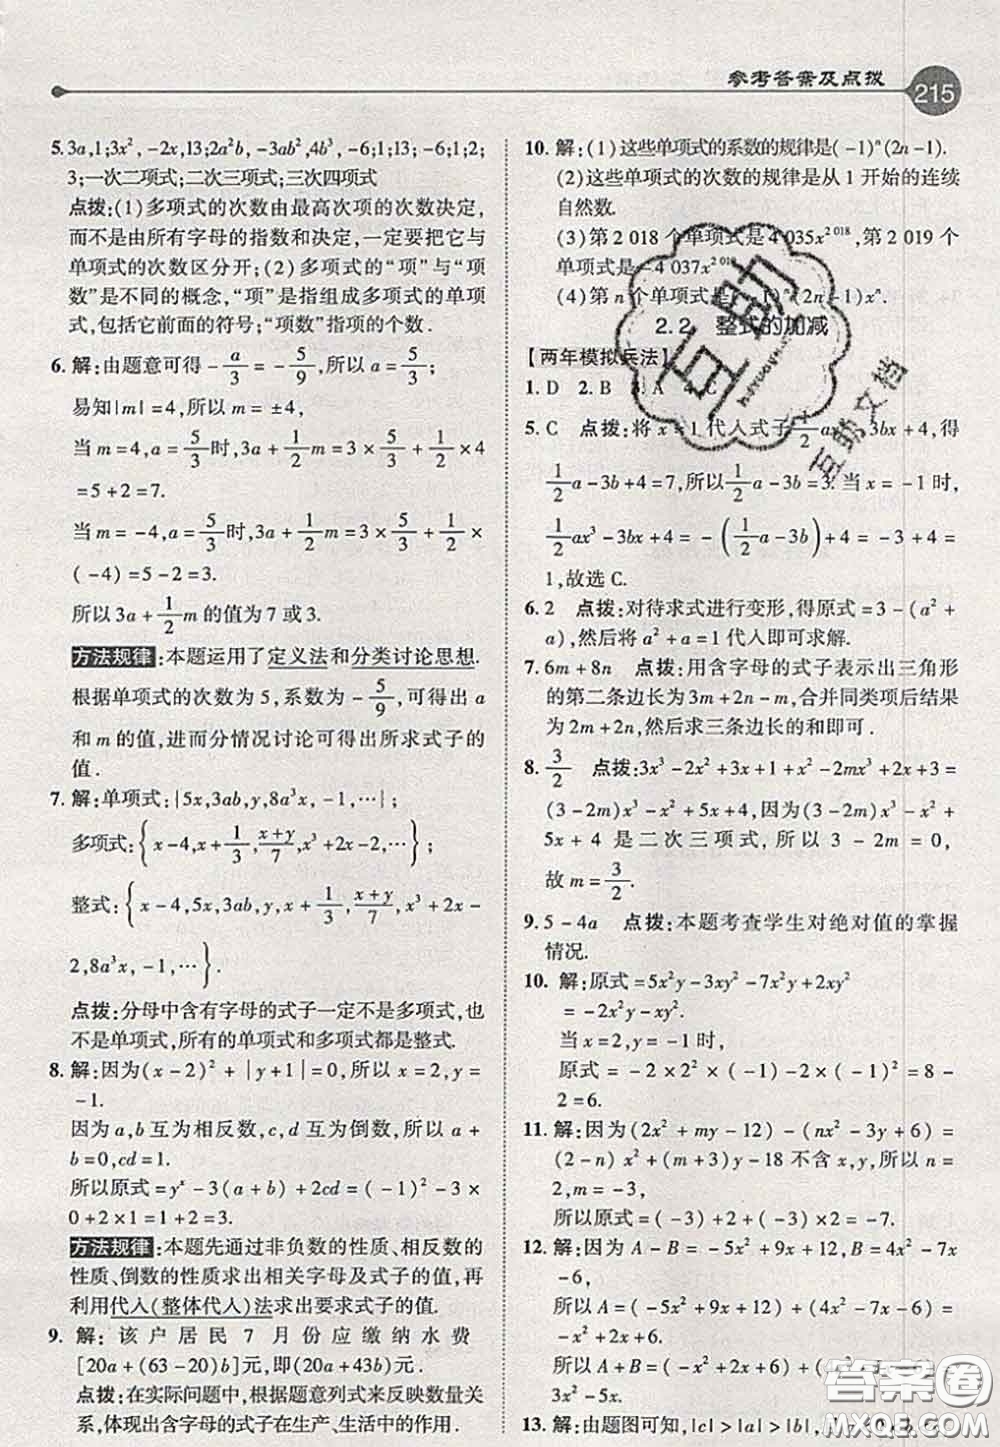 参考答案及点拨
215
5. 3a,1;3x²,-2x,13;2a²b,-3ab²,4b³,-6;1;13;-6;1;2;
3;一次二项式;二次三项式;三次四项式
点拨:(1)多项式的次数由最高次项的次数决定,
而不是由所有字母的指数和决定,一定要把它与
单项式的次数区分开;(2)多项式的“项”与“项
数”是不同的概念,“项”是指组成多项式的单项
式,包括它前面的符号;“项数”指项的个数.
6. 解:由题意可得-a/3=-5/9,所以a=5/3;
易知|m|=4,所以m=±4,
当m=4,a=5/3时,3a+1/2m=3×5/3+1/2×4
=5+2=7.
当m=-4,a=5/3时,3a+1/2m=3×5/3+1/2×
(-4)=5-2=3.
所以3a+1/2m的值为7或3.
方法规律:本题运用了定义法和分类讨论思想.
根据单项式的次数为5,系数为-5/9,可得出a
和m的值,进而分情况讨论可得出所求式子的
值.
7. 解:单项式:{5x,3ab,y,8a³x,-1,…};
多项式:{x-4,x+1/3,(x+y)/7,x³+2x-2,…};
整式:{x-4,5x,3ab,y,x+1/3,(x+y)/7,x³+2x-
2,8a³x,-1,…}.
点拨:分母中含有字母的式子一定不是多项式,也
不是单项式,所有的单项式和多项式都是整式.
8. 解:因为(x-2)²+|y+1|=0,所以x=2,y=
-1.
因为a,b互为相反数,c,d互为倒数,所以a+
b=0,cd=1.
所以原式=yˣ-3(a+b)+2cd=(-1)²-3×
0+2×1=1-0+2=3.
方法规律:本题先通过非负数的性质、相反数的
性质、倒数的性质求出相关字母及式子的值,再
利用代入(整体代入)法求出要求式子的值.
9. 解:该户居民7月份应缴纳水费
[20a+(63-20)b]元,即(20a+43b)元.
点拨:在实际问题中,根据题意列式来反映数量关
系,体现出含字母的式子在生产、生活中的作用.
10. 解:(1)这些单项式的系数的规律是(-1)ⁿ(2n-1).
(2)这些单项式的次数的规律是从1开始的连续
自然数.
(3)第2 018个单项式是4 035x²⁰¹⁸,第2 019个
单项式是-4 037x²⁰¹⁹.
(4)第n个单项式是(-1)ⁿ(2n-1)xⁿ.
2.2 整式的加减
【两年模拟兵法】
1. D 2. B 3. A 4. C
5. C 点拨:将x=1代入式子1/2ax³-3bx+4,得
1/2a-3b+4=7,所以1/2a-3b=3.当x=-1时,
1/2ax³-3bx+4=-(1/2a-3b)+4=-3+4=
1,故选C.
6. 2 点拨:对待求式进行变形,得原式=3-(a²+
a),然后将a²+a=1代入即可求解.
7. 6m+8n 点拨:用含字母的式子表示出三角形
的第二条边长为3m+2n-m,合并同类项后结果
为2m+2n,然后求三条边长的和即可.
8. 3/2 点拨:3x³-2x²+3x+1+x²-2mx³+2x+3=
(3-2m)x³-x²+5x+4,因为(3-2m)x³-x²+
5x+4是二次三项式,所以3-2m=0,
故m=3/2.
9. 5-4a 点拨:本题考查学生对绝对值的掌握
情况.
10. 解:原式=5x²y-3xy²-7x²y+2xy²
=-2x²y-xy².
当x=2,y=-1时,
原式=-2×2²×(-1)-2×(-1)²=8-
2=6.
11. 解:因为(2x²+my-12)-(nx²-3y+6)=
(2-n)x²+(m+3)y-18不含x,y,所以n=
2,m=-3,
所以原式=(-3)+2+(-3)×2=-7.
12. 解:因为A-B=-5x²+9x+12,B=4x²-7x
-6,
所以A=(-5x²+9x+12)+(4x²-7x-6)=
-5x²+9x+12+4x²-7x-6=-x²+2x+6.
所以A+B=(-x²+2x+6)+(4x²-7x-6)=
3x²-5x.
13. 解:由题图可知,|c|>|a|>|b|,
互助
互助文档
答案圈
MXQE.COM